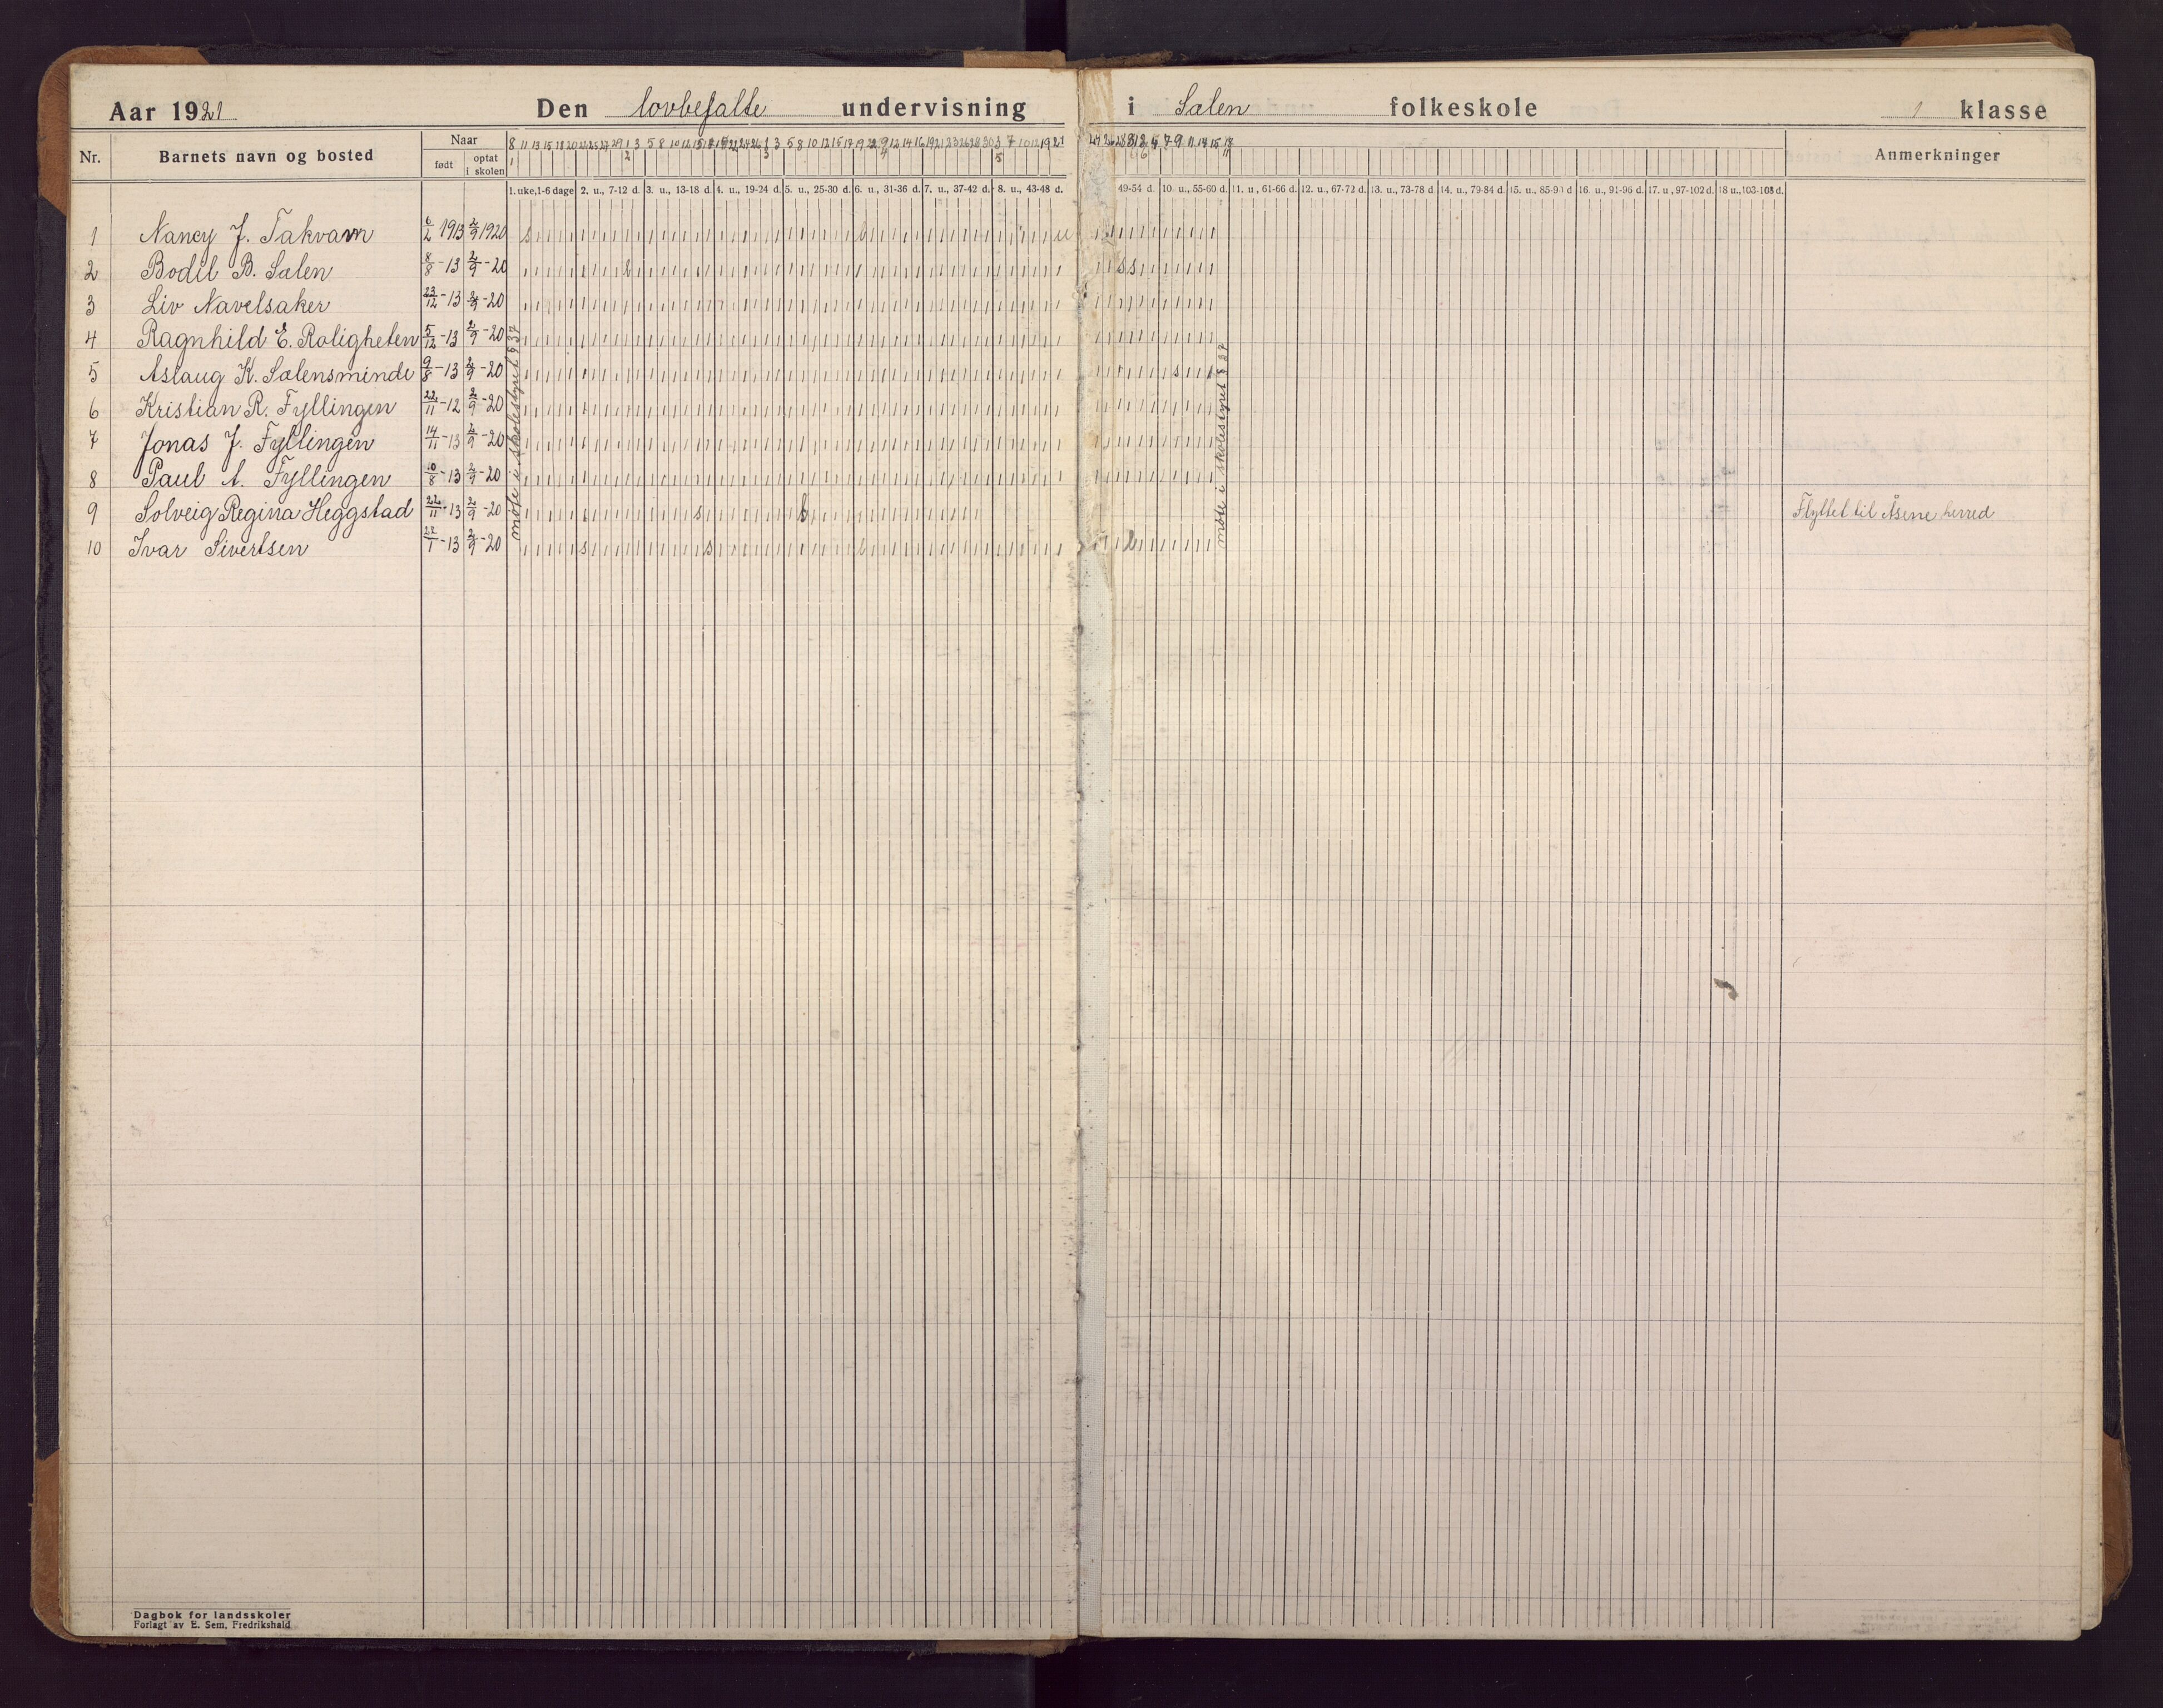 Aar 1921 Den lovbefalte undervisning i Sælen folkeskole 1 klasse
Nr. Barnets navn og bosted Naar født optat i skolen Anmerkninger
1. uke, 1-6 dage 2. u., 7-12 d. 3. u., 13-18 d. 4. u., 19-24 d. 5. u., 25-30 d. 6. u., 31-36 d. 7. u., 37-42 d. 8. u., 43-48 d. 49-54 d. 10. u., 55-60 d. 11. u., 61-66 d. 12. u., 67-72 d. 13. u., 73-78 d. 14. u., 79-84 d. 15. u., 85-90 d 16. u., 91-96 d. 17. u., 97-102 d. 18 u., 103-108 d.
1 Nancy J. Takvam 6/2 1913 2/9 1920
2 Bodil B. Sælen 8/8 - 13 2/9 - 20
3 Liv Navelsaker 23/12 - 13 2/9 - 20
4 Ragnhild E. Roligheten 5/12 - 13 2/9 - 20
5 Aslaug K. Sælensminde 9/8 - 13 2/9 - 20
6 Kristian R. Fyllingen 22/11 - 12 2/9 - 20
7 Jonas J. Fyllingen 14/11 - 13 2/9 - 20
8 Paul A. Fyllingen 10/8 - 13 2/9 - 20
9 Solveig Regina Heggstad 22/11 - 13 2/9 - 20 Flyttet til Åsene herred
10 Ivar Sivertsen 22/1 - 13 2/9 - 20
møte i skolestyret § 37
møte i skolestyret § 37
Dagbok for landsskoler
Forlagt av E. Sem, Fredrikshald